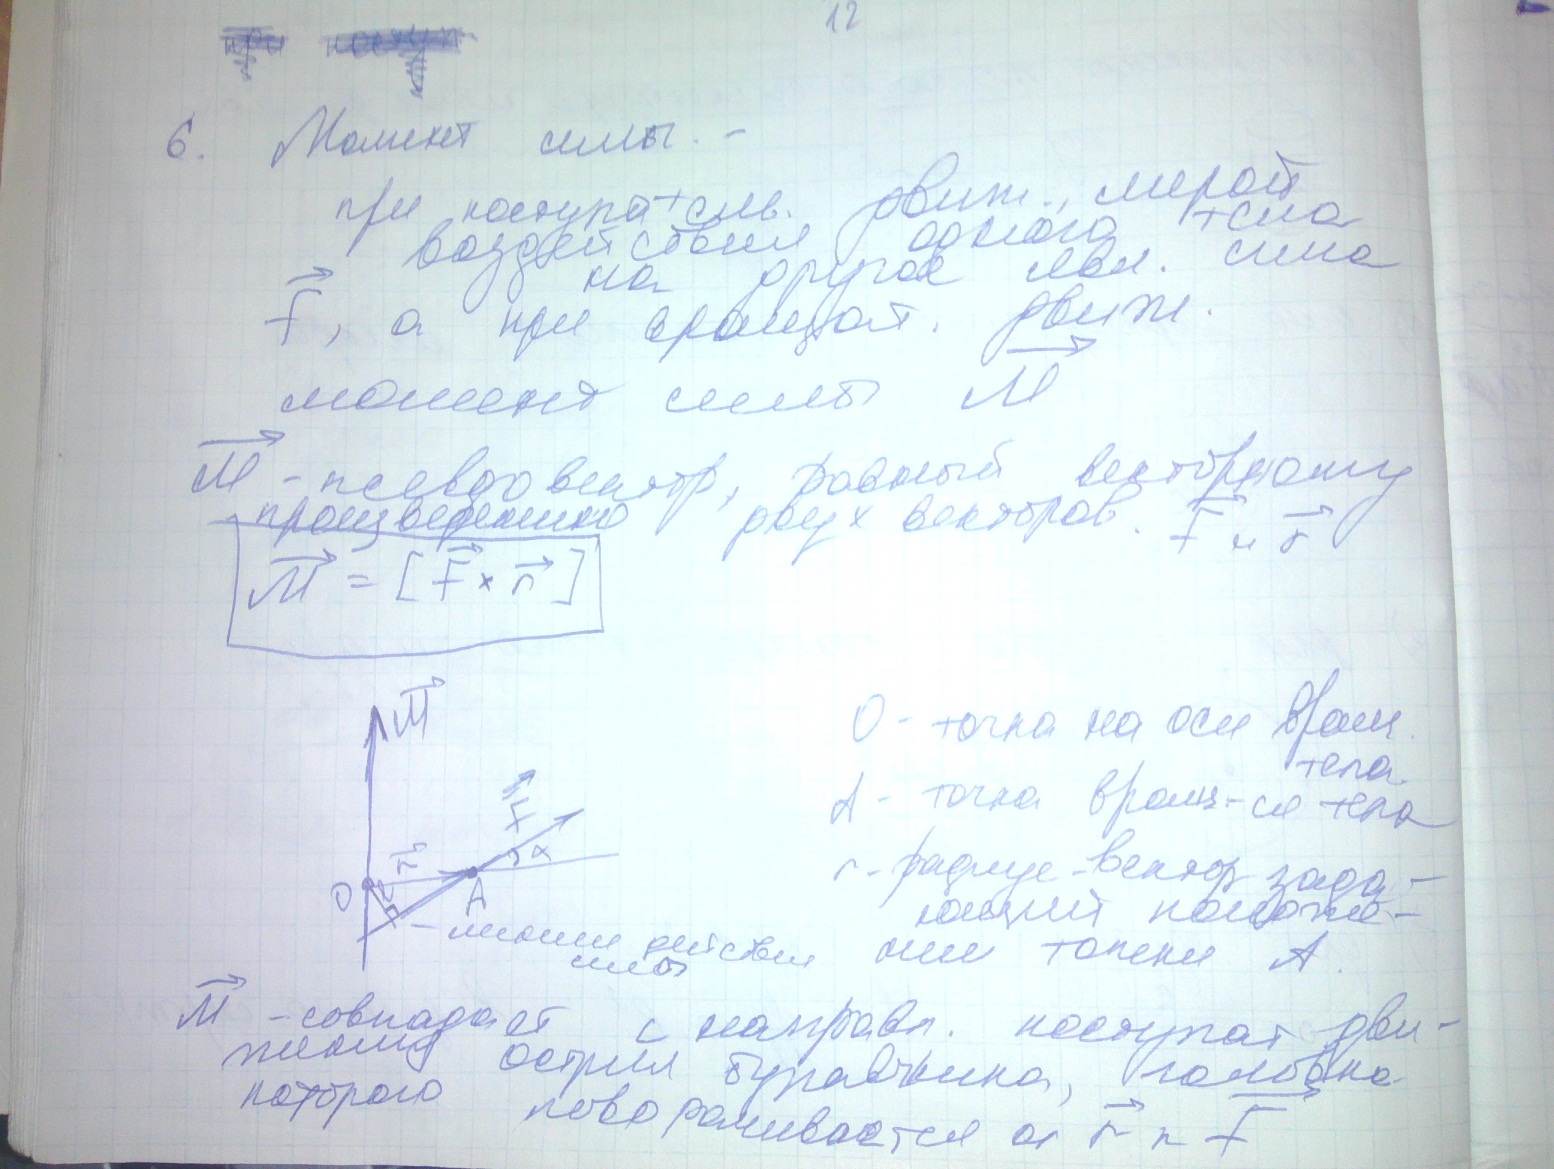 12
при поступ
6. Момент силы. -
при поступательн. движ., мерой
воздействия одного тела
на другое явл. сила
F, а при вращат. движ.
момент силы M
M - псевдовектор, равный векторному
произведению двух векторов. F и r
M = [F × r]
M
F
r α
O A
- линия действия
силы
O - точка на оси вращ.
тела
A - точка вращ-ся тела
r - радиус-вектор зада-
ющий положе-
ние точки A.
M - совпадает с направл. поступат дви-
жения острия буравчика, головка
которого поворачивается от r к F